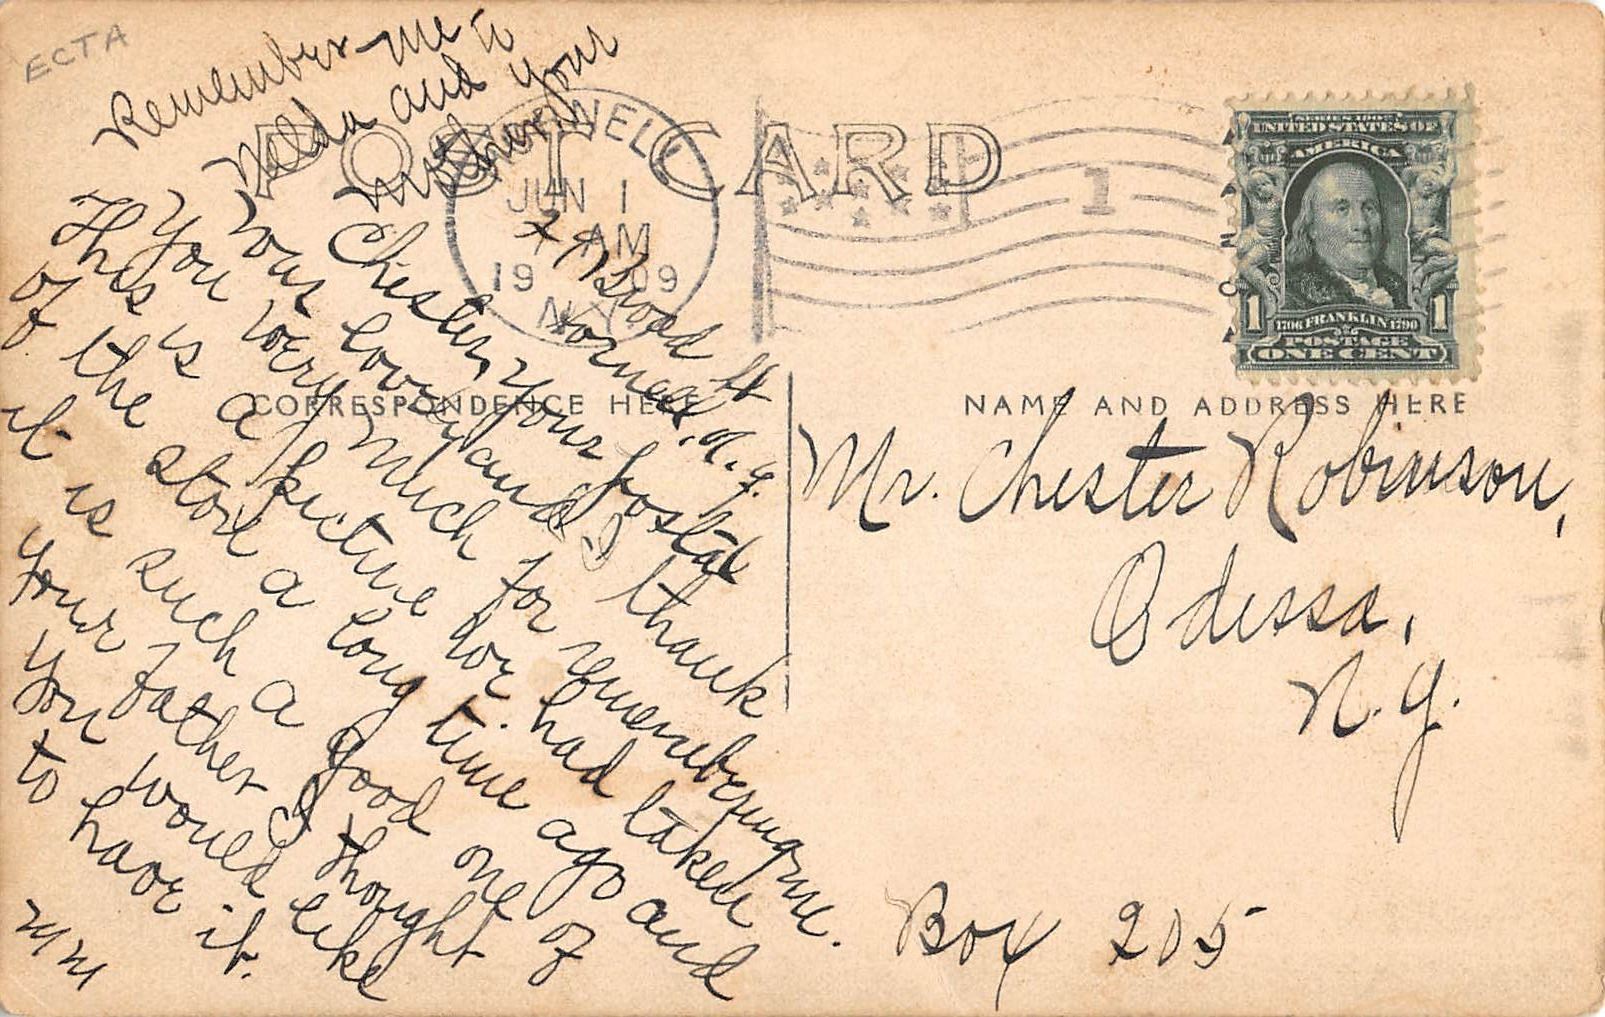 ECTA
Remember me to
Melda and your
mother
POST CARD
JUN 1
AM
19 09
N.Y.
1
SERIES 1902
UNITED STATES OF
AMERICA
1 1
1706 FRANKLIN 1790
POSTAGE
ONE CENT
CORRESPONDENCE HERE
NAME AND ADDRESS HERE
Broad St
Hornell, N.Y.
Chester, your postal
your love and I thank
you very much for remembering me.
This is a picture we had taken
of the store a long time ago and
it is such a good one of
your father I thought
you would like
to have it.
Mr. Chester Robinson,
Odessa,
N.Y.
Box 205